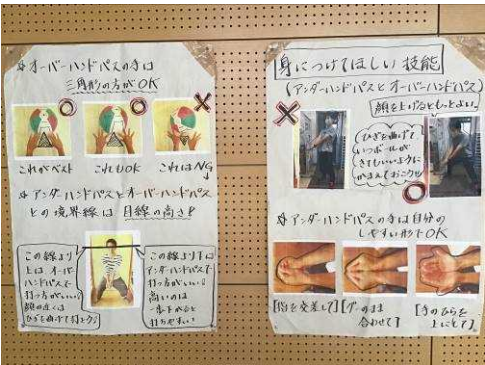 オーバーハンドパスの手は
三角形の方がOK
これがベスト
これもOK
これはNG
アンダーハンドパスとオーバーハンドパス
との境界線は目線の高さ!
この線より
上はオーバー
ハンドパスで
打つ方がいい!
この線より下は
アンダーハンドパスで
打つ方がいい!
高いのは
打ちやすい!
身につけてほしい技能
(アンダーハンドパスとオーバーハンドパス)
顔を上げるともっとよい。
ひざを曲げて
いつボールが
きてもいいように
かまえておこう!!
アンダーハンドパスの手は自分の
しやすい形でOK
[指を交差して]
[グーのまま
合わせて]
[手のひらを
上にして]